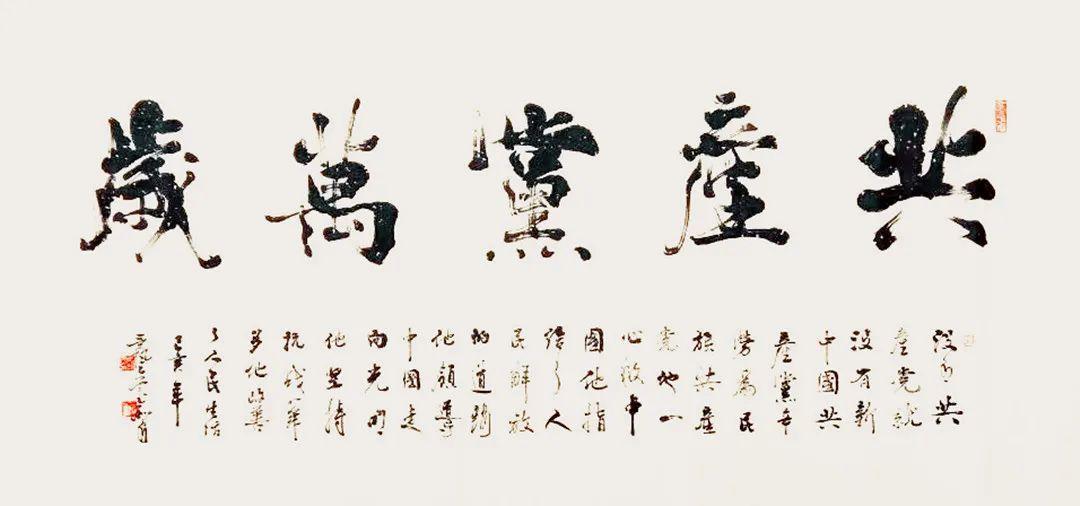 共產黨萬歲
没有共
產党就
没有新
中國共
產黨辛
勞為民
族共產
党他一
心救中
國他指
给了人
民解放
的道路
他領導
中國走
向光明
他坚持
抗战八年
多他改善
了人民生活
己亥年